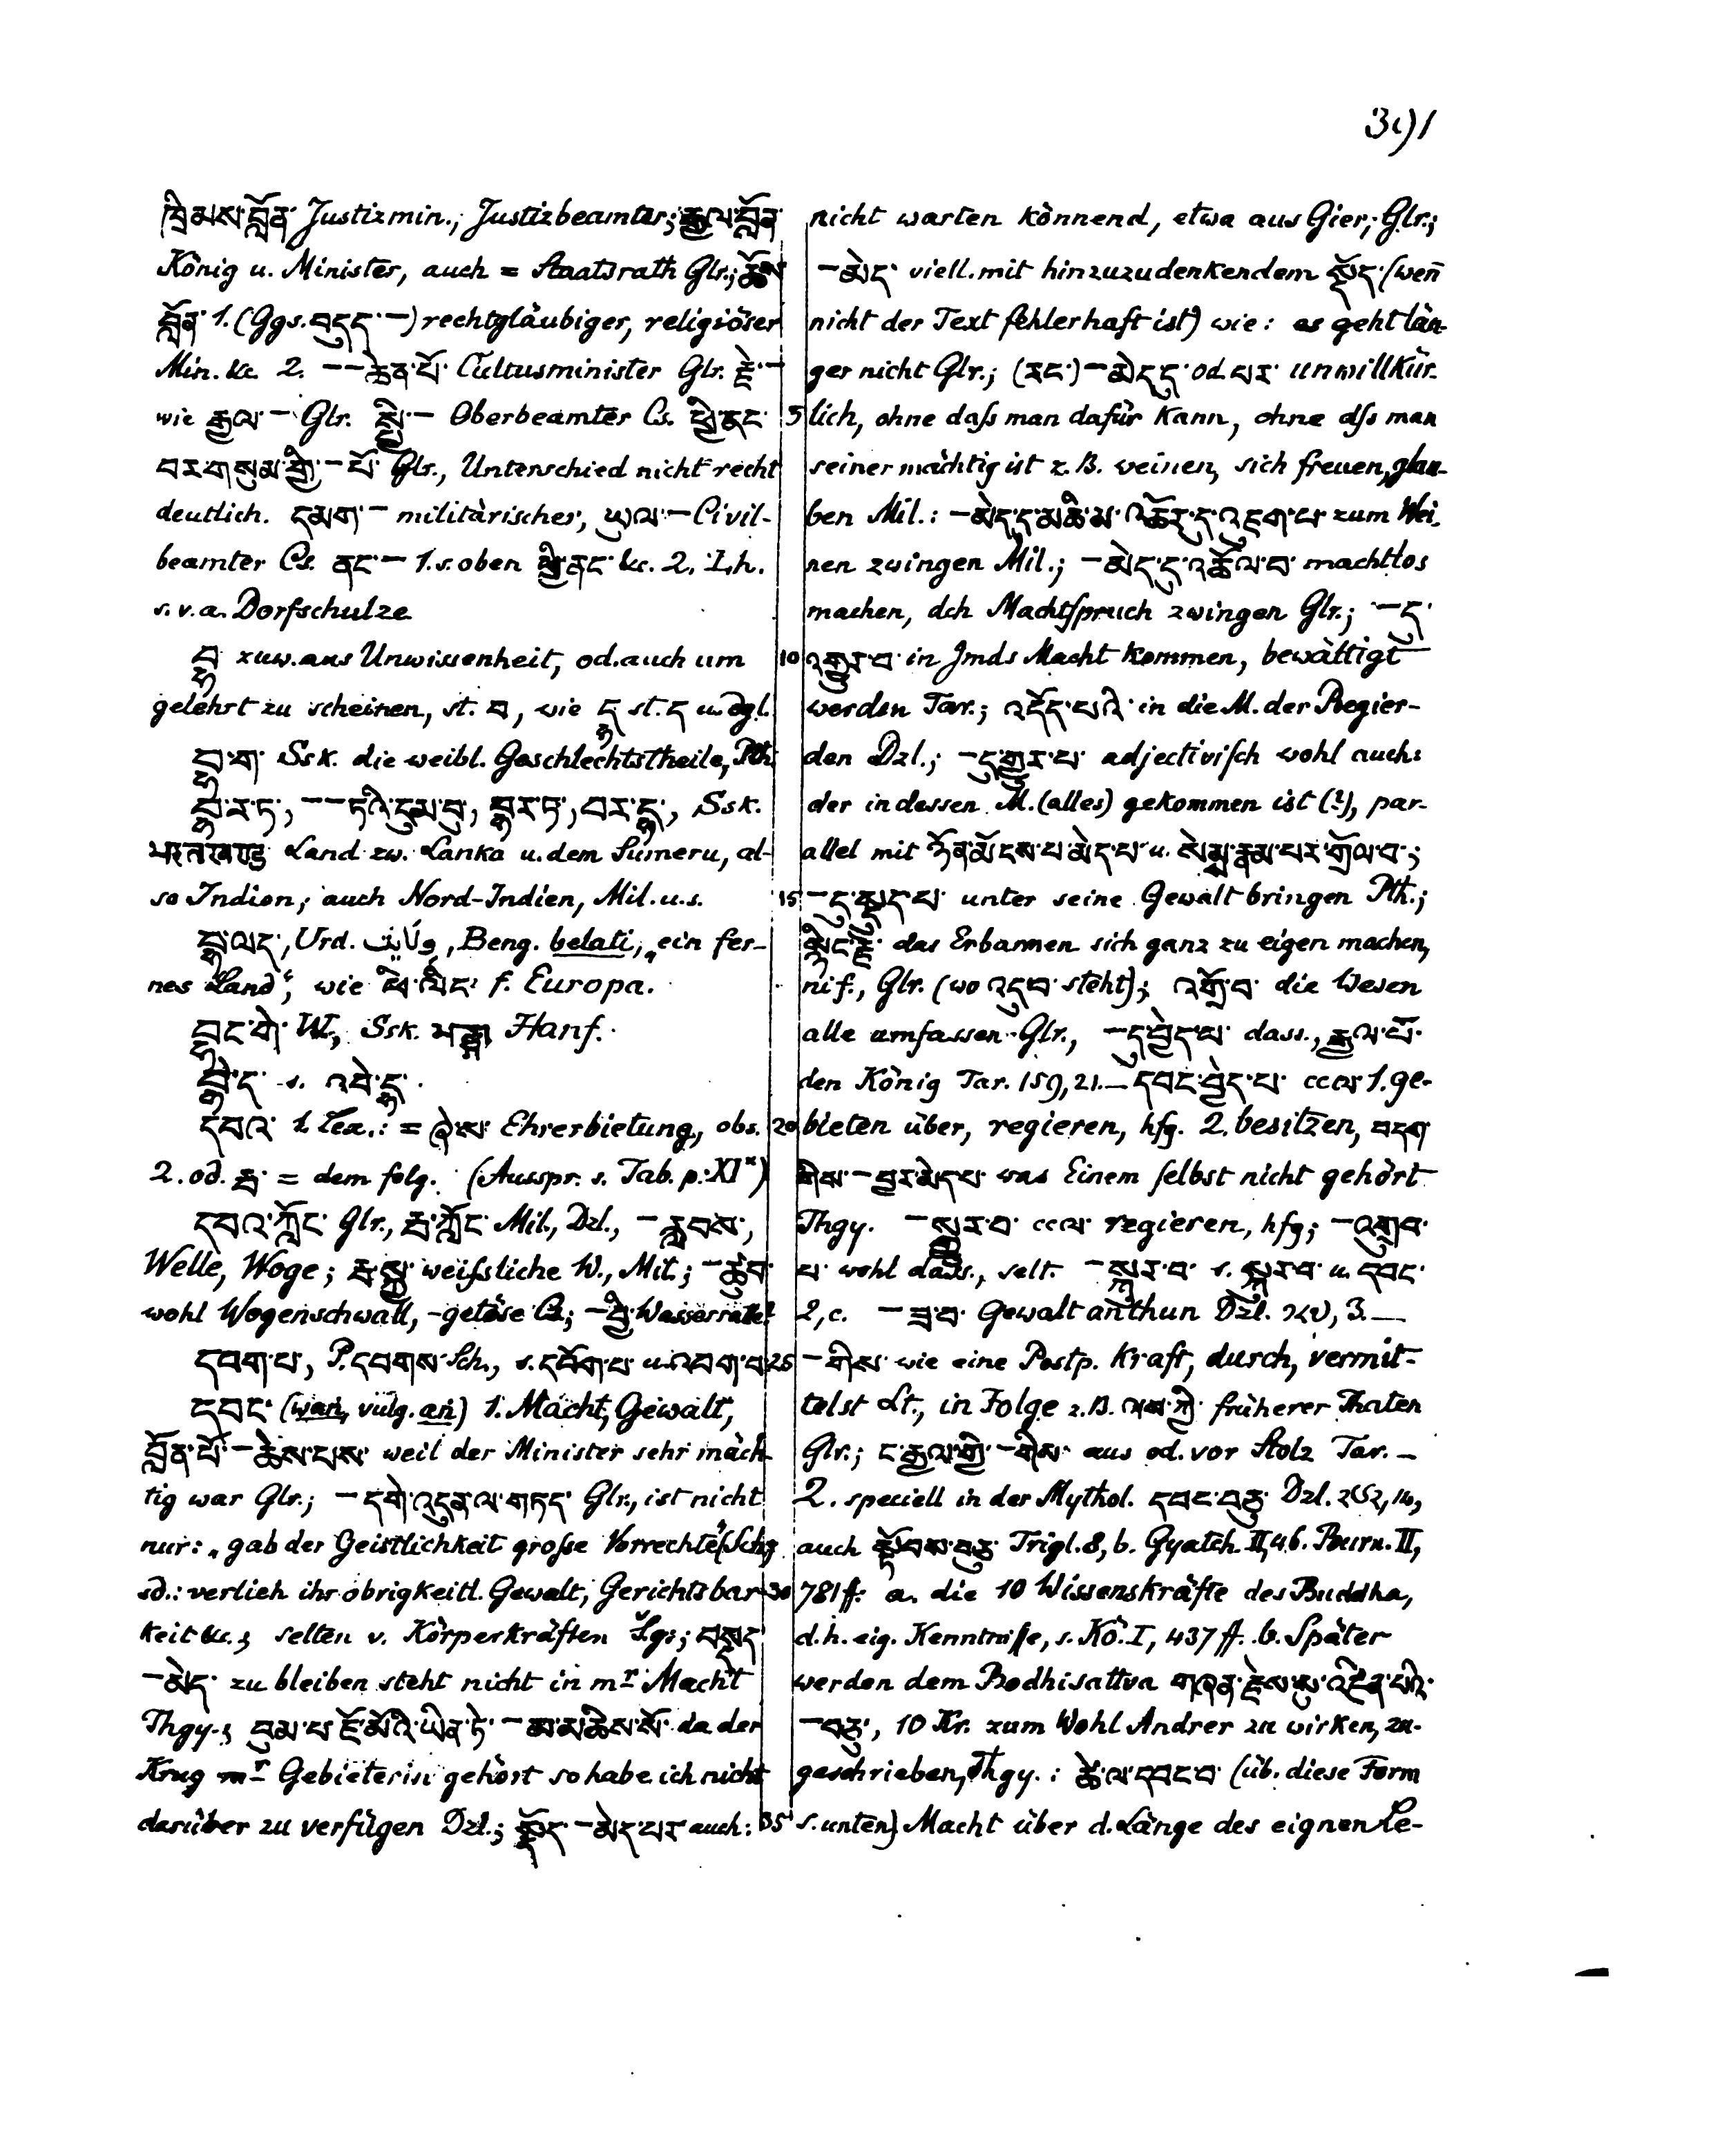 391
ཁྲིམས་བློན་ Justizmin., Justizbeamter; རྒྱལ་བློན་
König u. Minister, auch = Staatsrath Glr.; ཆོས་
བློན་ 1. (Ggs. བདུད་ –) rechtgläubiger, religiöser
Min. &c. 2. – – ཆེན་པོ་ Cultusminister Glr. རྗེ་ –
wie རྒྱལ་ – Glr. སྤྱི་ – Oberbeamter Cs. ཕྱི་ནང་ 5
བར་གསུམ་གྱི་ – པོ་ Glr., Unterschied nicht recht
deutlich. དམག་ – militärischer, ཡུལ་ – Civil-
beamter Cs. ནང་ – 1. s. oben ཕྱི་ནང་ &c. 2. Lh.
s. v. a. Dorfschulze
བྷ zuw. aus Unwissenheit, od. auch um 10
gelehrt zu scheinen, st. བ, wie དྷ st. ད u. dgl.
བྷ་ག་ Ssk. die weibl. Geschlechtstheile, Pth.
བྷ་ར་ཏ་, – – ཏའི་དུམ་བུ་, བྷར་ཏ་, བར་དྷ་, Ssk.
भरतखण्ड Land zw. Lanka u. dem Sumeru, al-
so Indien; auch Nord-Indien, Mil. u. s. 15
བྷ་ལད་, Urd. ولایت, Beng. belati, „ein fer-
nes Land“, wie ཕི་ལིང་ f. Europa.
བྷང་གེ་ W., Ssk. भङ्गा Hanf.
བྷེ་ད་ s. འབེ་དྷ་.
དབའ་ 1. Lex.: = ཞེ་ས་ Ehrerbietung, obs. 20
2. od. རྦ་ = dem folg. (Ausspr. s. Tab. p. XI*)
དབའ་ཀློང་ Glr., རྦ་ཀློང་ Mil., Dzl., – རླབས་,
Welle, Woge; རྦ་སྐྱ་ weißliche W., Mil.; – ཆུབ་
wohl Wogenschwall, -getöse Cs.; – བྱི་ Wasserratte?
དབག་པ་, P. དབགས་ Sch., s. དབོག་པ་ u. འབག་པ་ 25
དབང་ (waṅ, vulg. aṅ) 1. Macht, Gewalt,
བློན་པོ་ – ཆེས་པས་ weil der Minister sehr mäch-
tig war Glr.; – དགེ་འདུན་ལ་གཏད་ Glr., ist nicht
nur: „gab der Geistlichkeit große Vorrechte“ (Sch.)
sd.: verlieh ihr obrigkeitl. Gewalt, Gerichtsbar- 30
keit &c.; selten v. Körperkräften Lgs; བསྡད་
– མེད་ zu bleiben steht nicht in mr Macht
Thgy.; བུམ་པ་ཇོ་མོའི་ཡིན་ཏེ་ – མ་མཆིས་སོ་ da der
Krug mr Gebieterin gehört so habe ich nicht
darüber zu verfügen Dzl.; སྡོད་ – མེད་པར་ auch: 35
nicht warten könnend, etwa aus Gier, Glr.;
– མེད་ viell. mit hinzuzudenkendem སྡོད་ (weñ
nicht der Text fehlerhaft ist) wie: es geht län-
ger nicht Glr.; (རང་) – མེད་དུ་ od. པར་ unwillkür-
lich, ohne daß man dafür kann, ohne dß man
seiner mächtig ist z. B. weinen, sich freuen, glau-
ben Mil.: – མེད་དུ་མཆི་མ་འཆོར་དུ་འཇུག་པ་ zum Wei-
nen zwingen Mil.; – མེད་དུ་འཆོལ་བ་ machtlos
machen, dch Machtspruch zwingen Glr.; – དུ་
འགྱུར་བ་ in Jmds Macht kommen, bewältigt
werden Tar.; འདོད་པའི་ in die M. der Begier-
den Dzl.; – དུ་གྱུར་པ་ adjectivisch wohl auch:
der in dessen M. (alles) gekommen ist (?), par-
allel mit ཉོན་མོངས་པ་མེད་པ་ u. སེམས་རྣམ་པར་གྲོལ་བ་;
– དུ་སྡུད་པ་ unter seine Gewalt bringen Pth.;
སྙིང་རྗེ་ das Erbarmen sich ganz zu eigen machen,
ni f., Glr. (wo འདུབ་ steht); འགྲོ་བ་ die Wesen
alle umfassen Glr., – དུ་བྱེད་པ་ dass., རྒྱལ་པོ་
den König Tar. 159, 21. – དབང་བྱེད་པ་ ccལ་ 1. ge-
bieten über, regieren, hfg. 2. besitzen, བདག་
གིས་ – བྱར་མེད་པ་ was Einem selbst nicht gehört
Thgy. – སྒྱུར་བ་ ccལ་ regieren, hfg; – འགྲུབ་
པ་ wohl dass., selt. – སྐུར་བ་ s. སྐུར་བ་ u. དབང་
2, c. – ཟ་བ་ Gewalt anthun Dzl. 3. –
– གིས་ wie eine Postp. kraft, durch, vermit-
telst Lt., in Folge z. B. ལས་ཀྱི་ früherer Thaten
Glr.; ང་རྒྱལ་གྱི་ – གིས་ aus od. vor Stolz Tar. –
2. speciell in der Mythol. དབང་བཅུ་ Dzl.
auch སྟོབས་བཅུ་ Trigl. 8, b. Gyatch. II, 46. Burn. II,
781 ff. a. die 10 Wissenskräfte des Buddha,
d. h. eig. Kenntniße, s. Kö. I, 437 ff. b. Später
werden dem Bodhisattva གཞན་རྗེས་སུ་འཛིན་པའི་
– བཅུ་, 10 Kr. zum Wohl Andrer zu wirken, zu-
geschrieben, Thgy.: ཚེ་ལ་དབང་བ་ (üb. diese Form
s. unten) Macht über d. Länge des eignen Le-